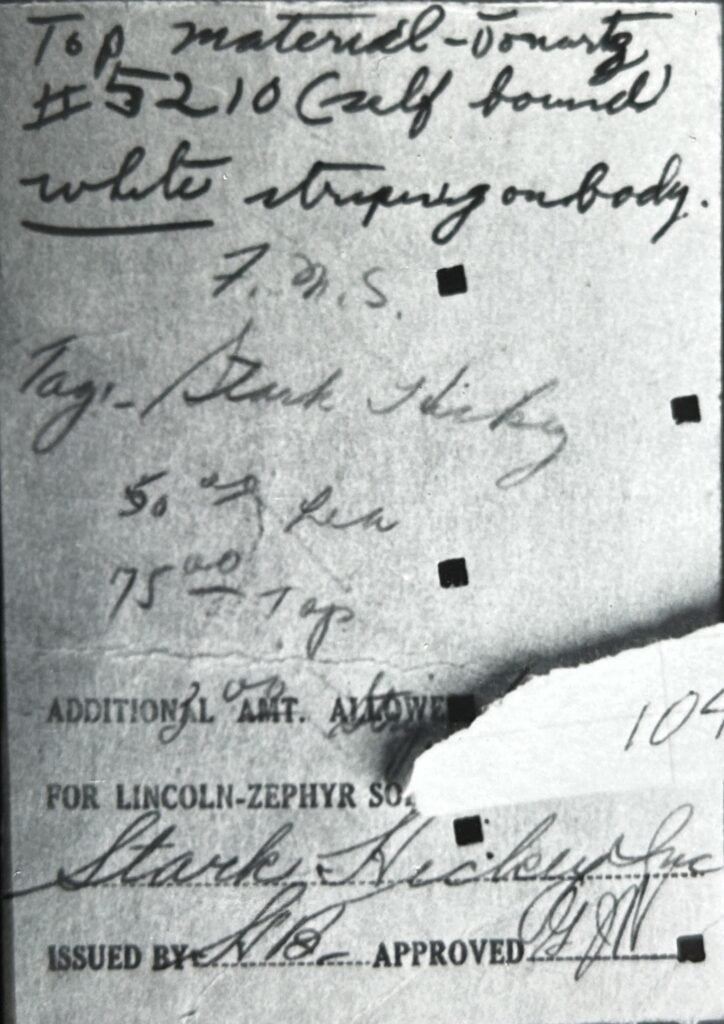 Top material -
#5210 (self bound
white striping on body.
F. M. S.
Tag:- Stark Hickey
50 00 Lea
75 00 Top
2 00
ADDITIONAL AMT. ALLOWE
104
FOR LINCOLN-ZEPHYR SO
Stark Hickey Inc
ISSUED BY: APPROVED